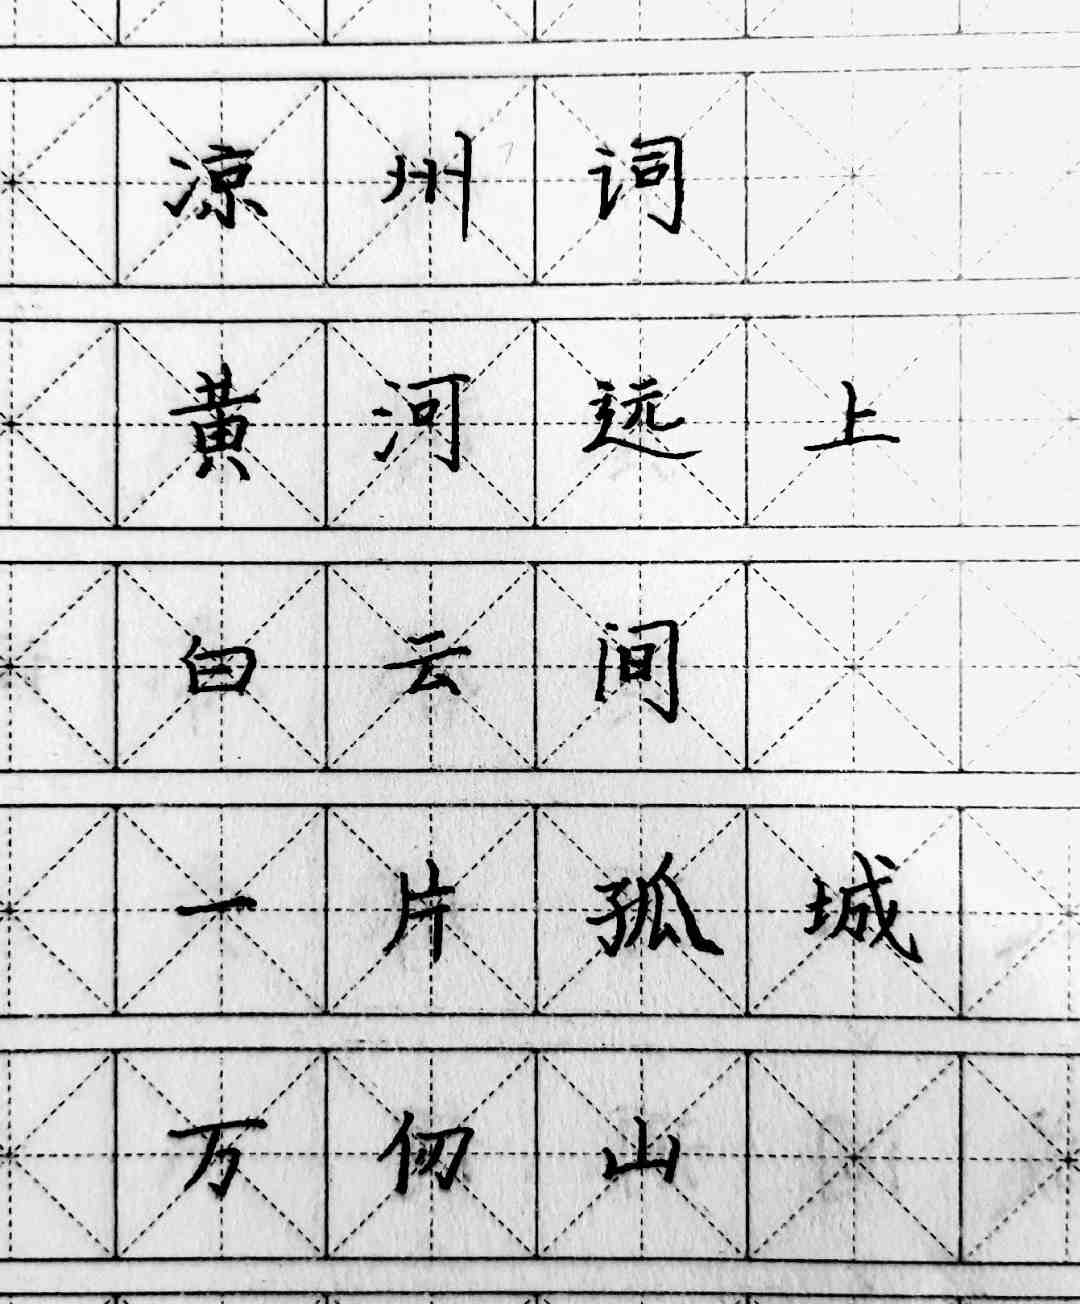 凉州词
黄河远上
白云间
一片孤城
万仞山